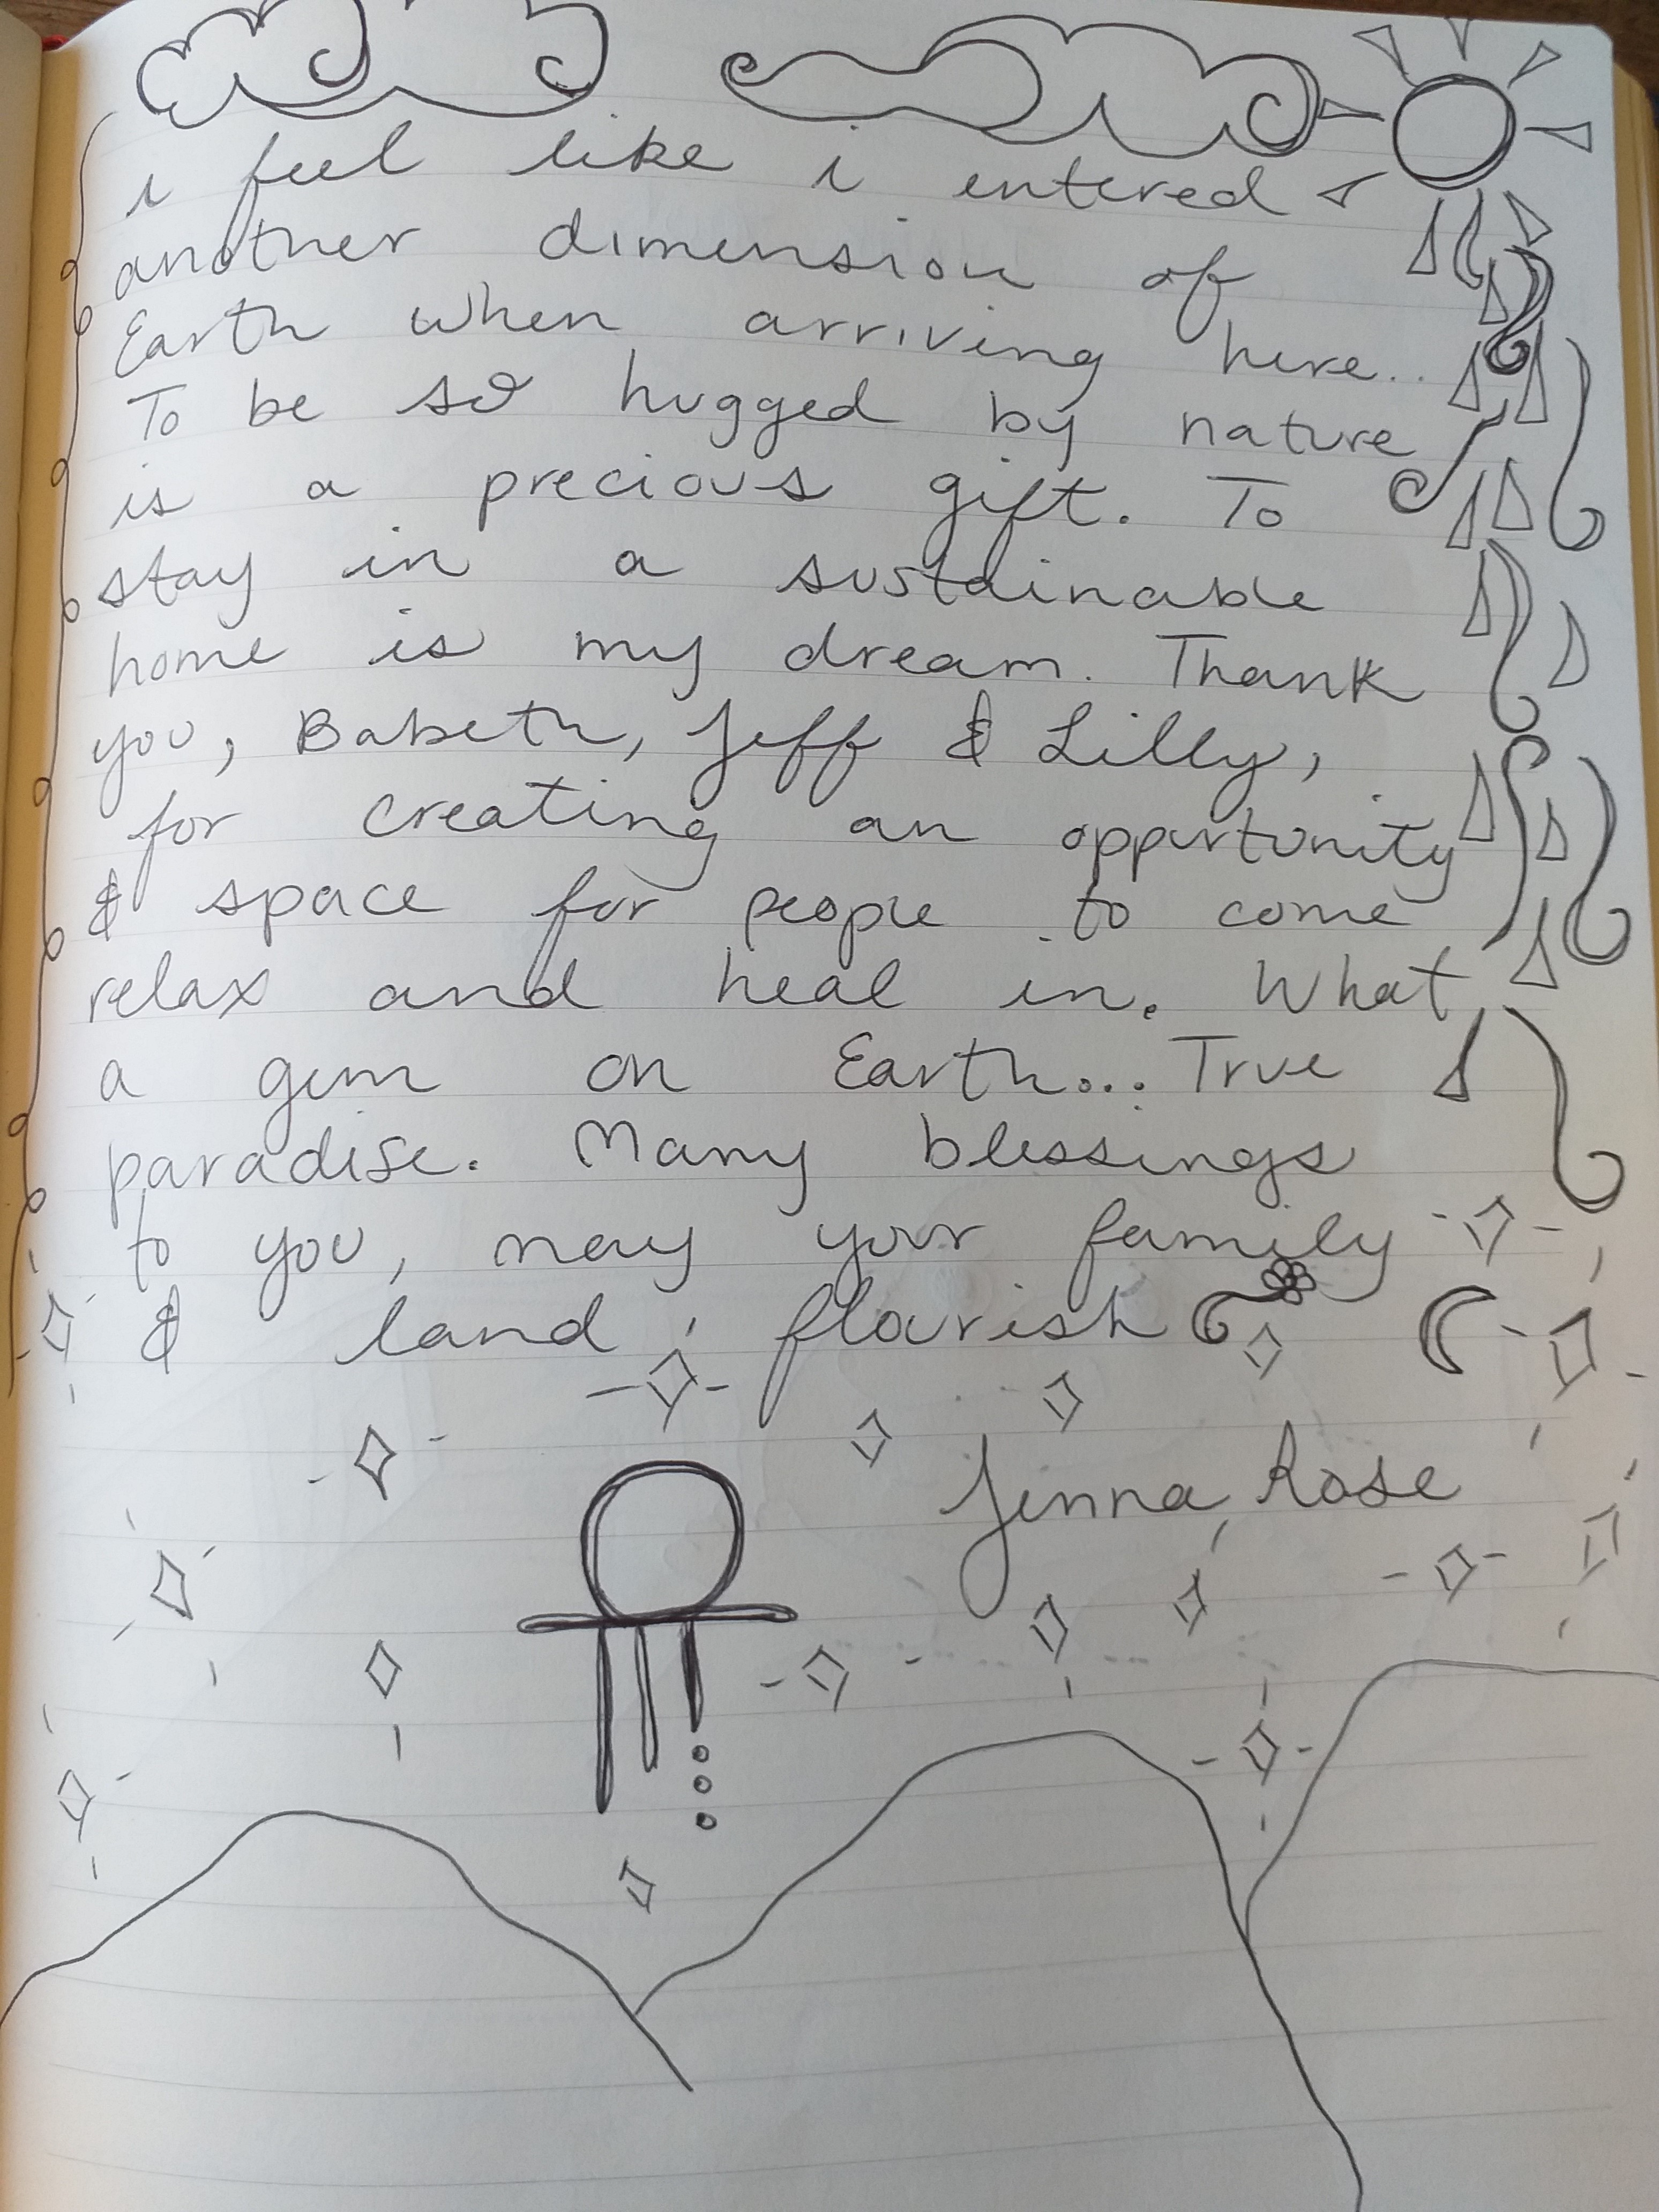 i feel like i entered
another dimension of
Earth when arriving here..
To be so hugged by nature
is a precious gift. To
stay in a sustainable
home is my dream. Thank
you, Babeth, Jeff & Lilly,
for creating an opportunity
& space for people to come
relax and heal in. What
a gem on Earth... True
paradise. Many blessings
to you, may your family
& land flourish
Jenna Rose